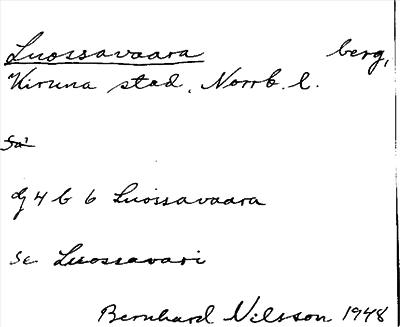 Luossavaara berg,
Kiruna stad, Norrb. l.
Sa
dj 4 b 6 Luossavaara
se Luossavari
Bernhard Nilsson 1948